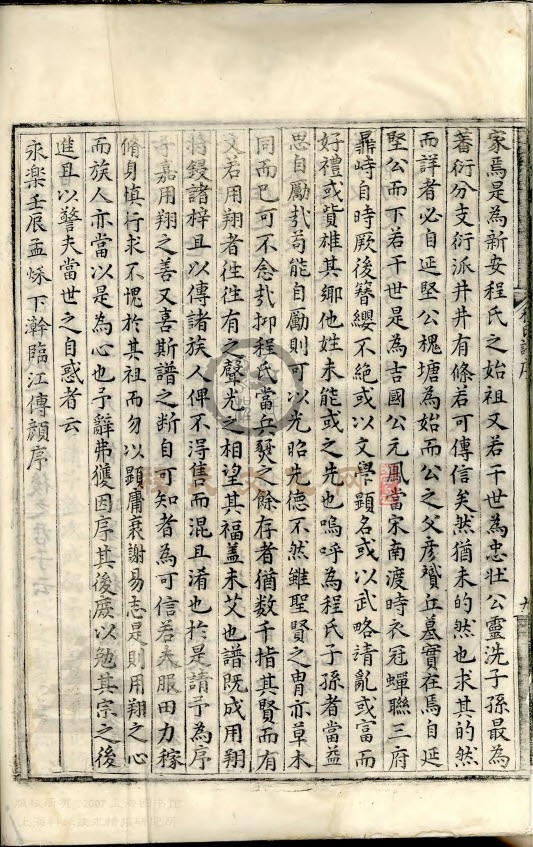 家焉是為新安程氏之始祖又若干世為忠壯公靈洗子孫最為
蕃衍分支衍派井井有條若可傳信矣然猶未的然也求其的然
而詳者必自延堅公槐塘為始而公之父彦赟丘墓實在焉自延
堅公而下若干世是為吉國公元鳳當宋南渡時衣冠蟬聯三府
鼎峙自時厥後簪纓不絶或以文學顕名或以武略清亂或富而
好禮或貲雄其鄉他姓未能或之先也嗚呼為程氏子孫者當益
思自勵㢤苟能自勵則可以光昭先德不然雖聖賢之胄亦草木
同而已可不念㢤抑程氏當兵燹之餘存者猶数千指其賢而有
文若用翔者徃徃有之聲光之相望其福盖未艾也譜既成用翔
将鋟諸梓且以傳諸族人俾不淂售而混且淆也於是請予為序
予嘉用翔之善又喜斯譜之断自可知者為可信若夫服田力穡
脩身慎行求不愧於其祖而勿以顕庸衰謝易志是則用翔之心
而族人亦當以是為心也予辭弗獲因序其後庪以勉其宗之後
進且以警夫當世之自惑者云
永楽壬辰孟秌下澣臨江傅顔序
版权所有©2007上海图书馆